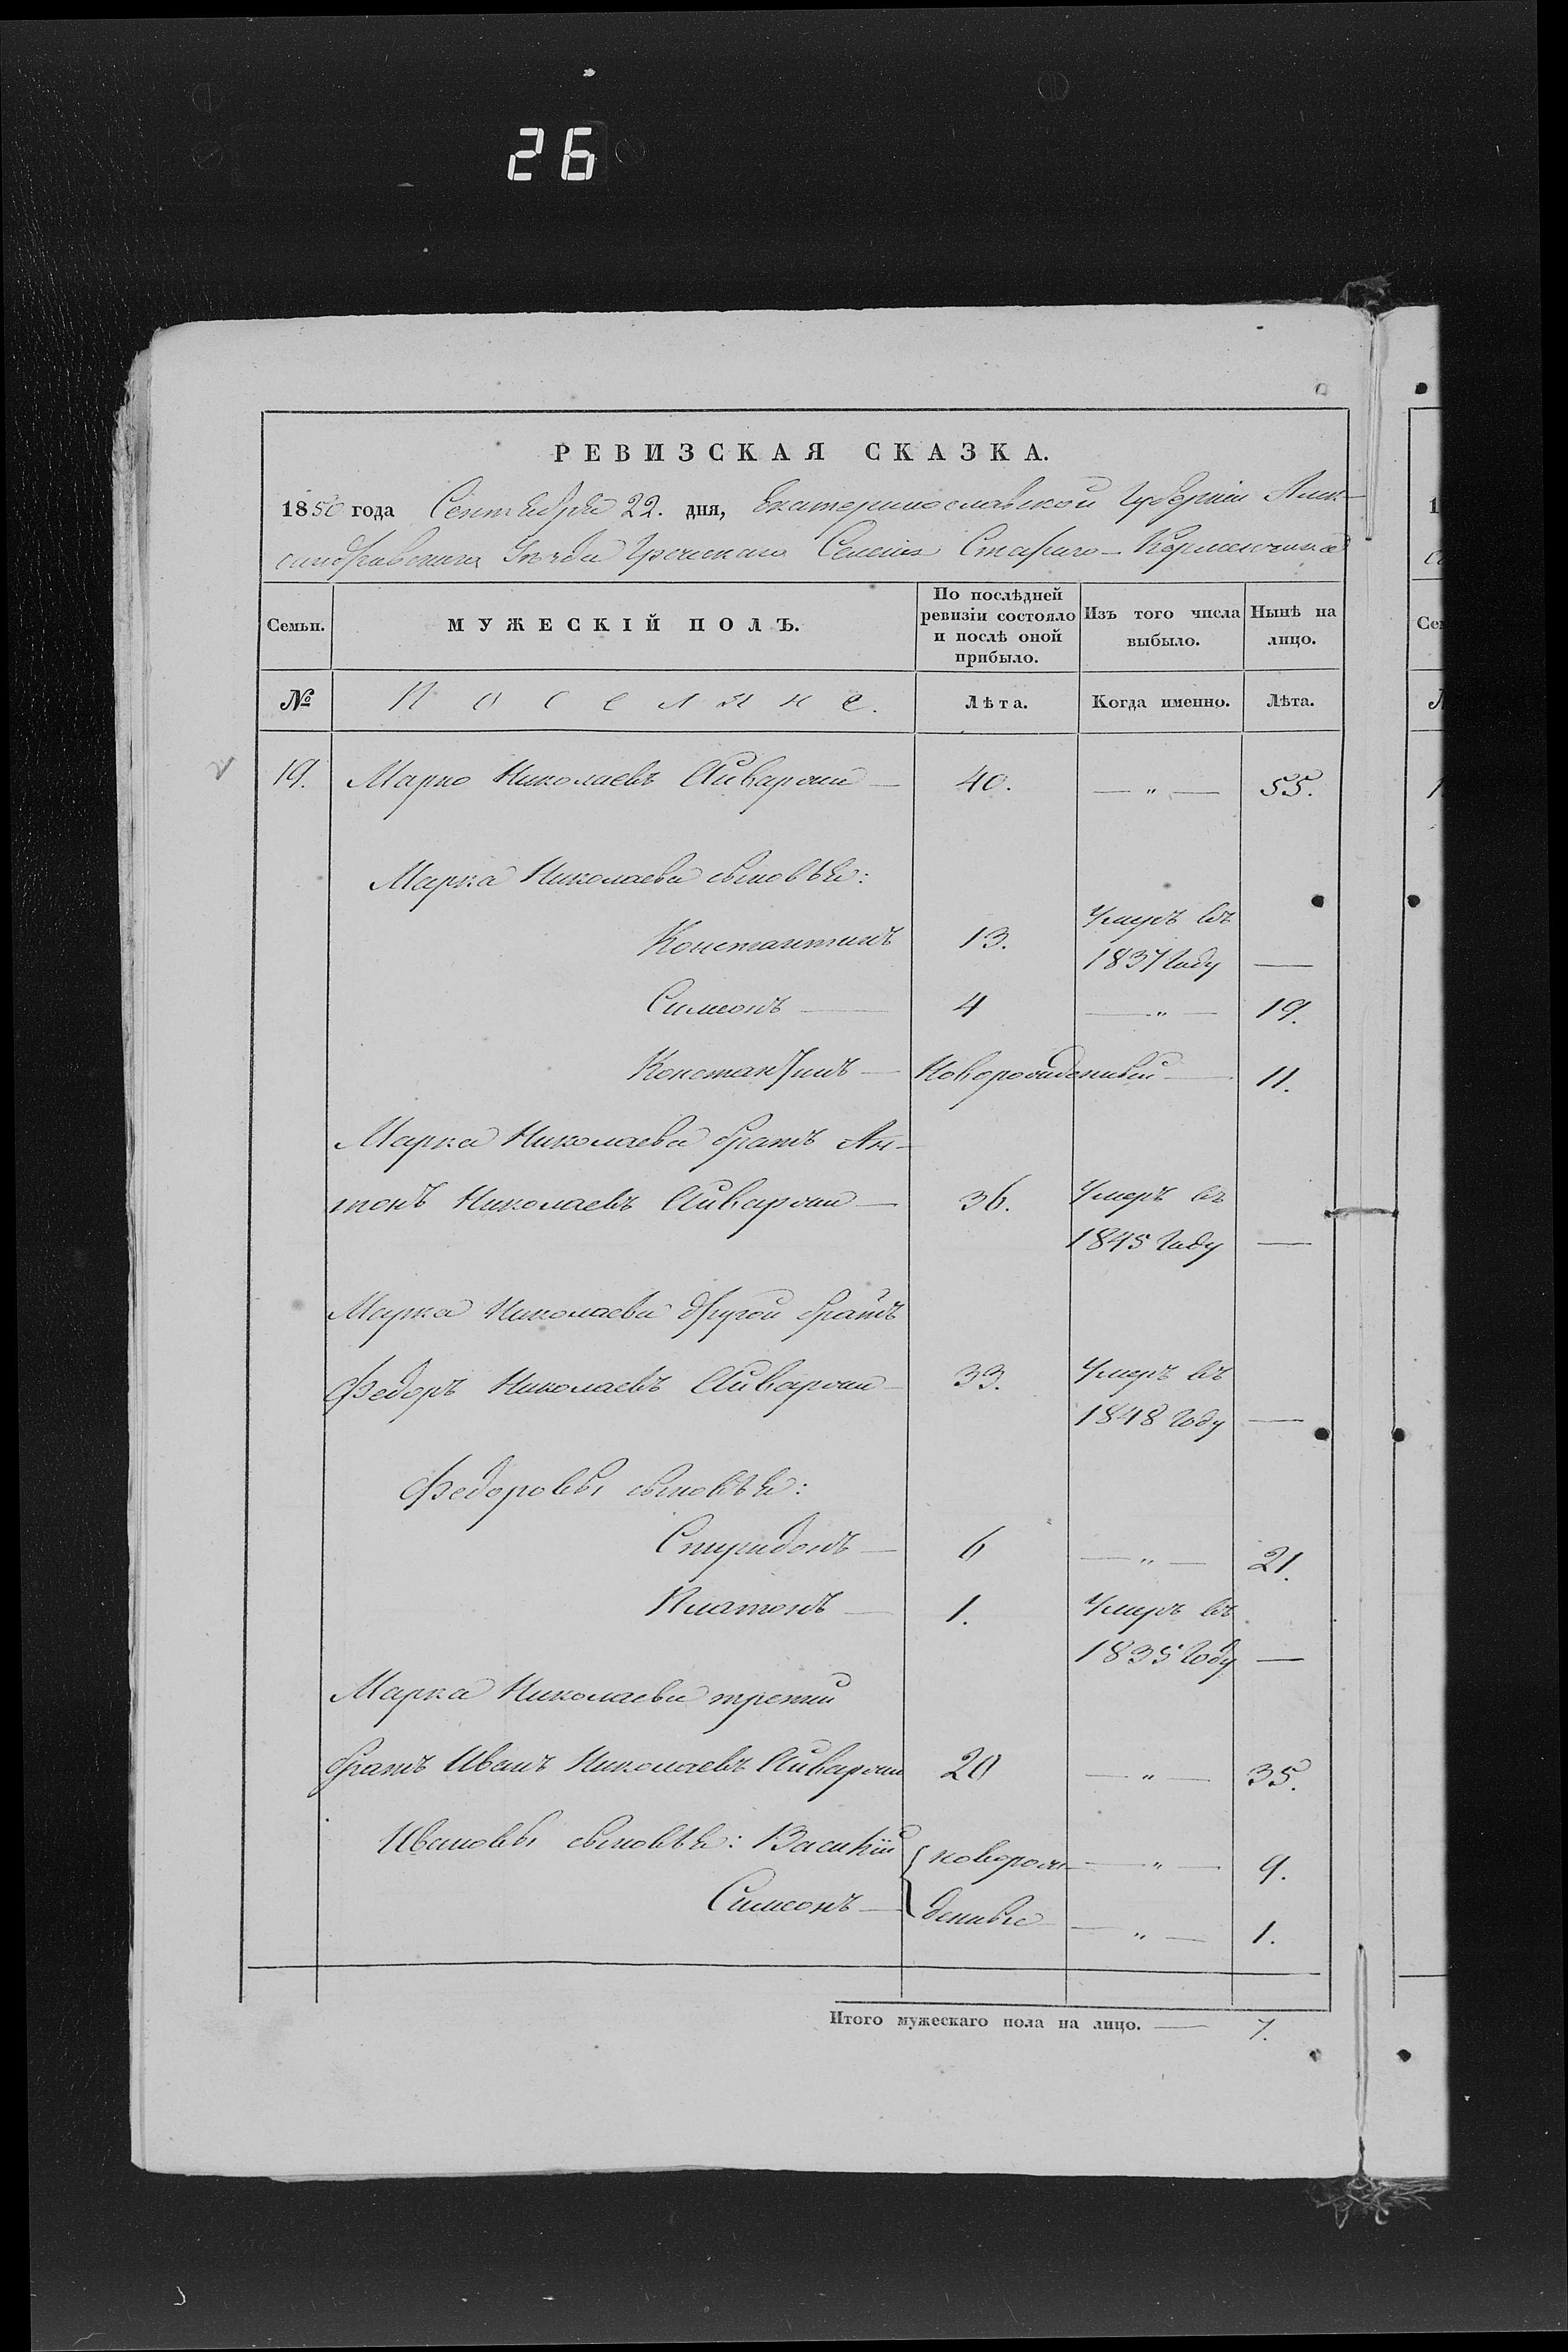 26
РЕВИЗСКАЯ СКАЗКА.
1850 года Сентября 22. дня, Екатеринославской Губернии Алек-
сандравскаго Уѣзда Греческаго Селения Стараго-Керменчика
Семьи. МУЖЕСКІЙ ПОЛЪ. По послѣдней ревизіи состояло и послѣ оной прибыло. Изъ того числа выбыло. Нынѣ на лицо.
№ Поселяне. Лѣта. Когда именно. Лѣта.
19. Марко Николаевъ Айваржи — 40. — „ — 55.
Марка Николаева сыновѣя:
Константинъ 13. Умеръ въ
1837 Году —
Симеонъ — 4 — „ — 19.
Константинъ — Новорожденный — 11.
Марка Николаева братъ Ан-
тонъ Николаевъ Айваржи — 36. Умеръ въ
1845 Году —
Марка Николаева другой братъ
Федоръ Николаевъ Айваржи — 33. Умеръ въ
1848 Году —
Федоровы сыновѣя:
Спиридонъ — 6 — „ — 21.
Платонъ — 1. Умеръ въ
1835 Году —
Марка Николаева третий
братъ Иванъ Николаевъ Айваржи 20 — „ — 35.
Ивановы сыновѣя: Василій новорож- — „ — 9.
Симеонъ — денные — „ — 1.
Итого мужескаго пола на лицо. — 7.